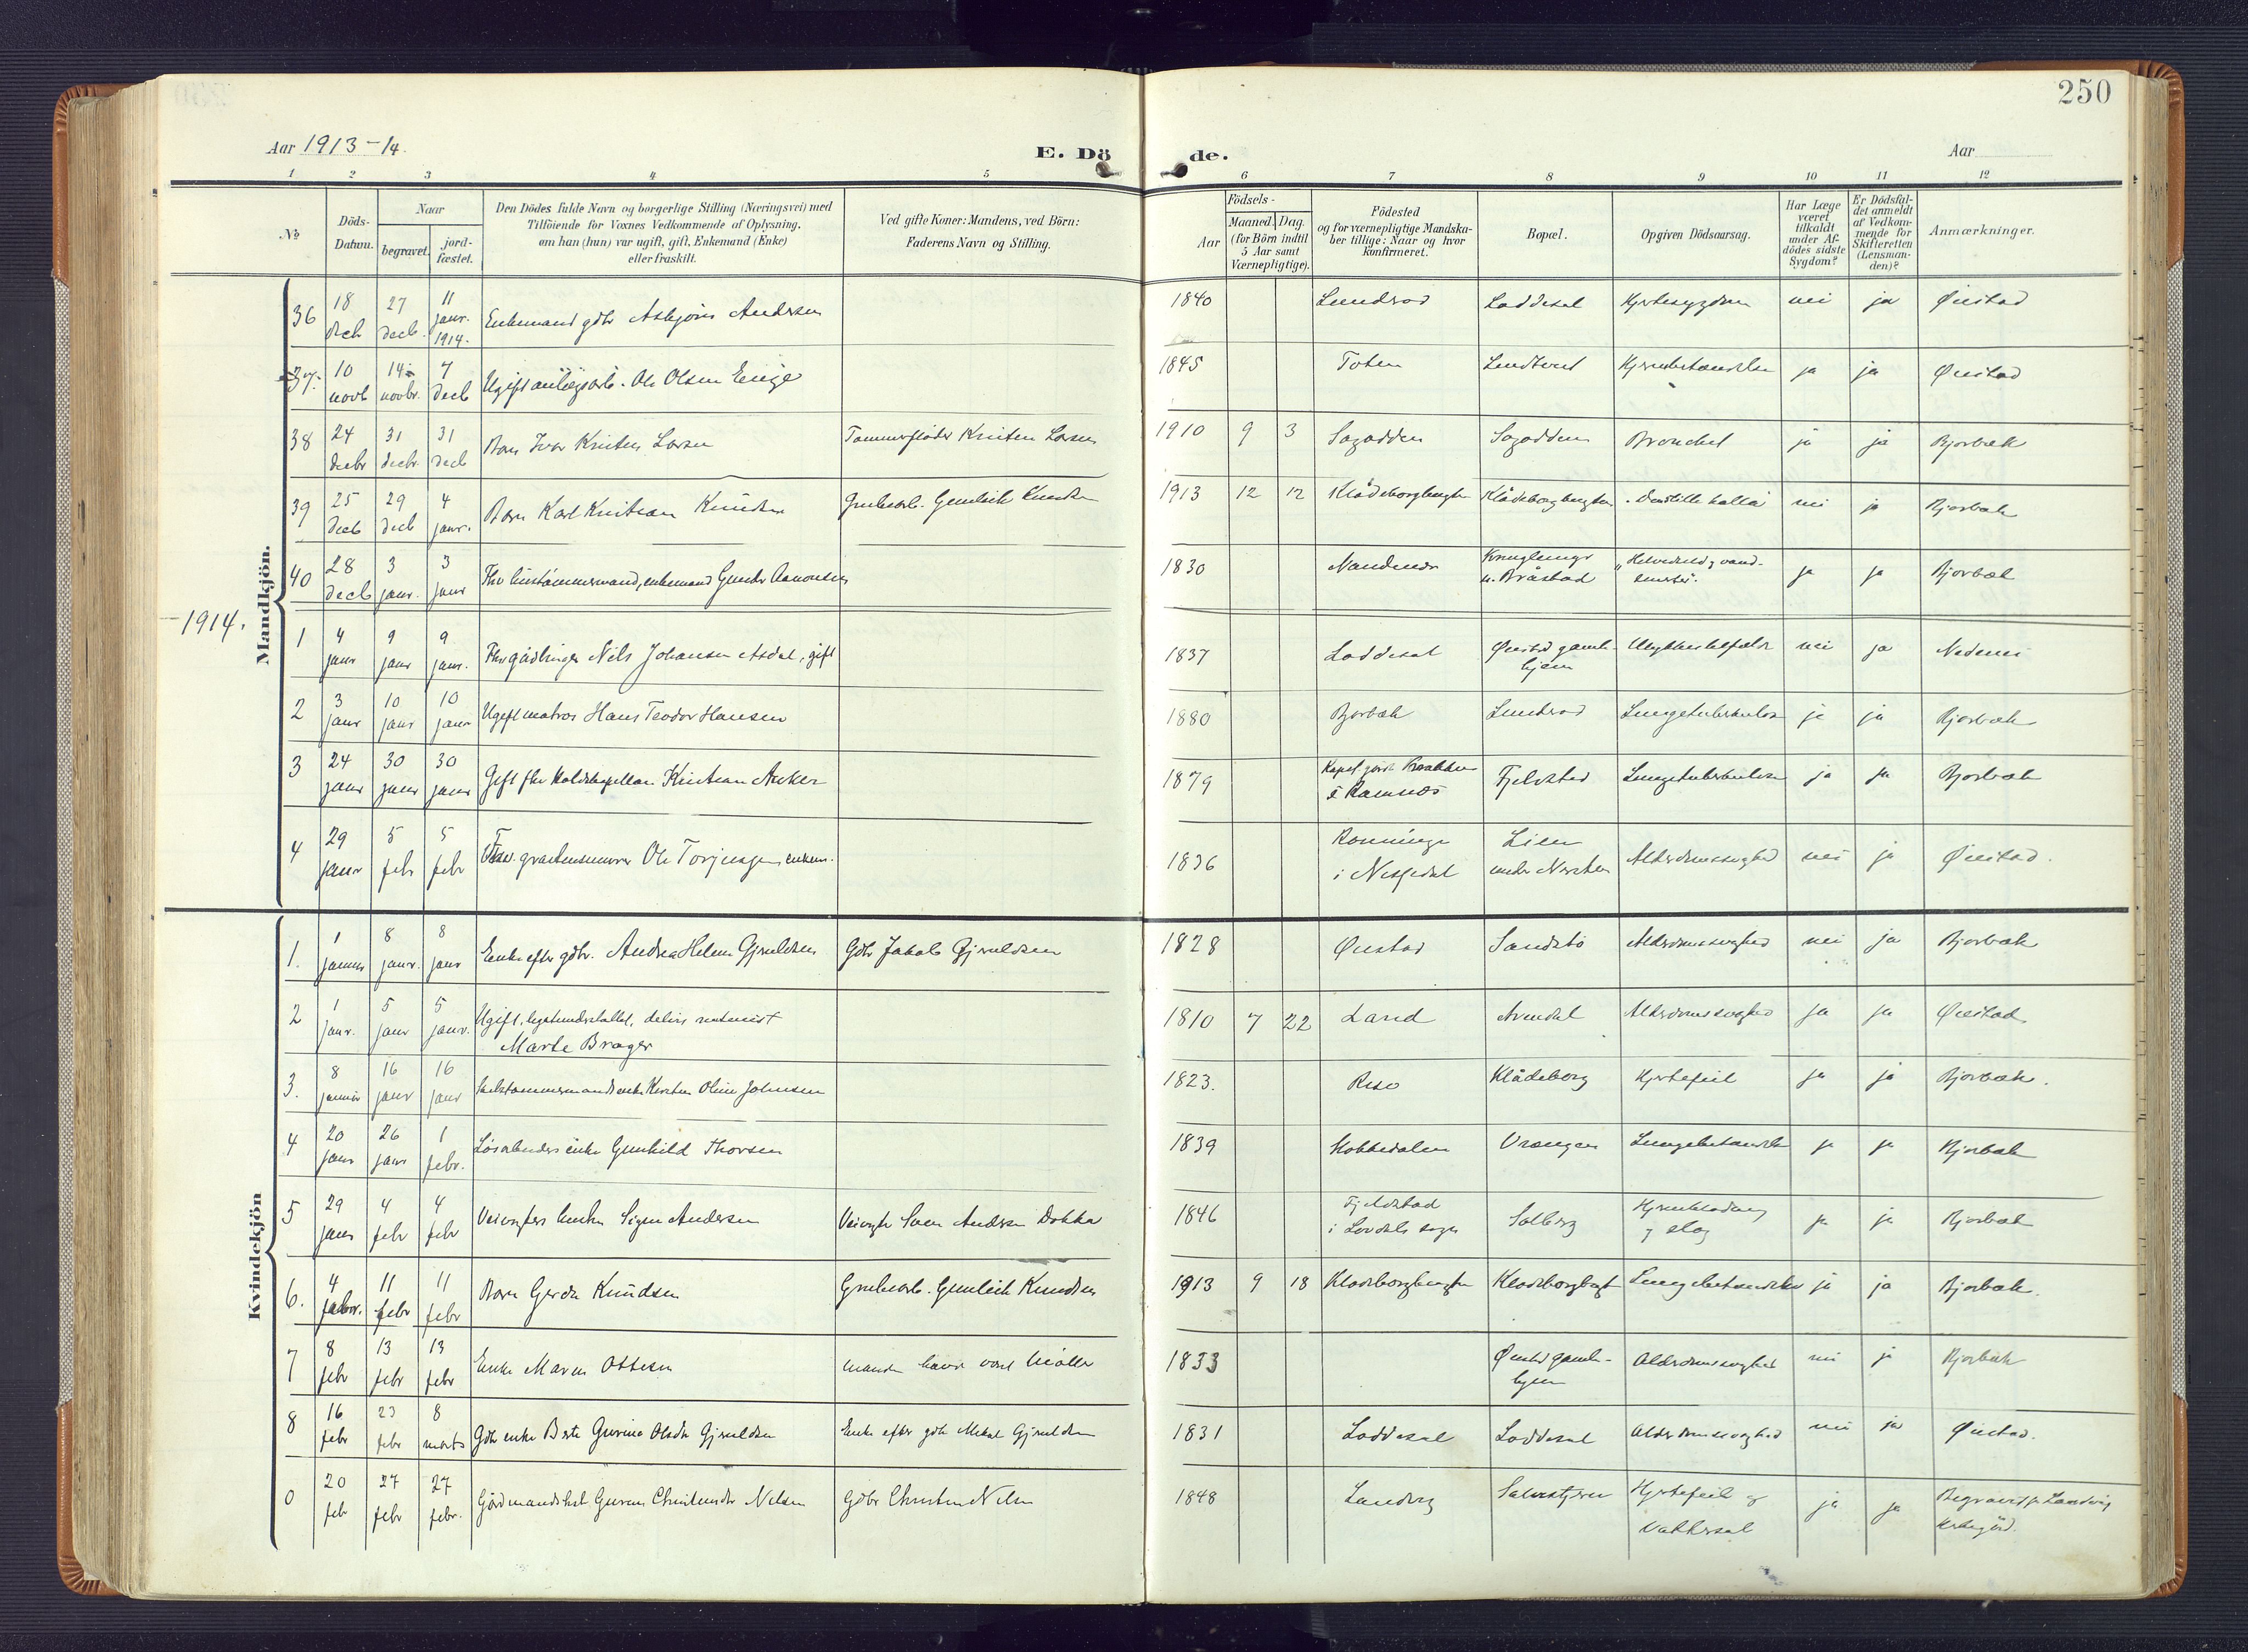 250
Aar 1913-14.
E. Dö de.
Aar
1 2 3 4 5 6 7 8 9 10 11 12
No
Döds-Datum.
Naar
begravet.
jord-fæstet.
Den Dödes fulde Navn og borgerlige Stilling (Næringsvei) med
Tilföiende for Voxnes Vedkommende af Oplysning,
om han (hun) var ugift, gift, Enkemand (Enke)
eller fraskilt.
Ved gifte Koner: Mandens, ved Börn:
Faderens Navn og Stilling.
Födsels-
Aar
Maaned. Dag.
(for Börn indtil
5 Aar samt
Værnepligtige).
Födested
og for værnepligtige Mandska-
ber tillige: Naar og hvor
konfirmeret.
Bopæl.
Opgiven Dödsaarsag.
Har Læge
været
tilkaldt
under Af-
dödes sidste
Sygdom?
Er Dödsfal-
det anmeldt
af Vedkom-
mende for
Skifteretten
(Lensman-
den)?
Anmærkninger.
Mandkjön.
36 18 decb 27 decb. 11 janr. 1914. Enkemand gdbr Asbjörn Andersen 1840 Lundrød Løddesøl Hjertesygdom nei ja Øiestad
37. 10 novb 14 novbr. 7 decb Ugift anlægsarb. Ole Olsen Enge 1845 Toten ja ja Øiestad
38 24 decbr 31 decbr. 31 decb Barn Ivar Kristen Larsen Tømmerfløder Kristen Larsen 1910 9 3 Sagodden Sagodden Bronchit ja ja Bjorbæk
39 25 decb 29 decb 4 janr. Barn Karl Kristian Knudsen Grubearb. Gunleik Knudsen 1913 12 12 Klådeborgbugten Klådeborgbugten nei ja Bjorbæk
40 28 decb 3 janr. 3 janr Fhv hustømmermand, enkemand Gunder Aanonsen 1830 u. Bråstad ja ja Bjorbæk
-1914.
1 4 janr 9 janr 9 janr. Fhv gårdbruger Nils Johansen Asdal, gift 1837 Løddesøl Øiestad gamle-hjem Ulykkestilfælde nei ja Nedenes
2 3 janr 10 janr 10 janr Ugift matros Hans Teodor Hansen 1880 Bjorbæk Lundrød Lungetuberkulose ja ja Bjorbæk
3 24 janr 30 janr 30 janr Gift fhv Kaldskapellan Kristian Anker 1879 i Ramnes Fjelstad Lungetuberkulose ja ja Bjorbæk
4 29 janr 5 febr 5 febr Fhv. Ole Torjusen enkem. 1836 Rønninge i Lien under Alderdomssvaghed nei ja Øiestad.
Kvindekjön
1. 1 januar 8 janr. 8 janr Enke efter gdbr. Andrea Helene Gjeruldsen Gdbr Jakob Gjeruldsen 1828 Øiestad Sandstø Alderdomssvaghed nei ja Bjorbæk
2 1 janr. 5 janr 5 janr. Ugift, Marte Brager 1810 7 22 Land Arendal Alderdomssvaghed ja ja Øiestad
3. 8 januar 16 janr 16 janr Kirsten Oline Johnsen 1823. Risø Klådeborg Hjertefeil ja ja Bjorbæk.
4 20 janr 26 janr 1 febr. Løsarbeiders enke Gunhild Thorsen 1839 Vrængen Lungebetændelse ja ja Bjorbæk
5 29 janr 4 febr 4 febr Veivogters enke Signe Andersen Veivogter Søren Andersen Dokka 1846 Fjeldstad i Solberg og slag ja ja Bjorbæk
6. 4 febr. 11 febr 11 febr Barn Gerda Knudsen Grubearb. Gunleik Knudsen 1913 9 18 Klodeborgbugten Klodeborgbugt Lungebetændelse ja ja Bjorbæk.
7 8 febr 13 febr 13 febr Enke Maren Ottesen manden havde været møller 1833 Øiestad gamle-hjem Alderdomssvaghed nei ja Bjorbæk
8 16 febr 23 febr 8 marts Gdbr enke Berte Gurine Olsdtr Gjeruldsen Enke efter gdbr Mikal Gjeruldsen 1831 Løddesøl Løddesøl Alderdomssvaghed nei ja Øiestad.
0 20 feb 27 febr 27 febr. Gårdmandshst. Guren Christensdtr Nilsen Gdbr Christen Nilsen 1848 Landvig Hjertefeil og Vattersot ja ja Begravet på Landvig kirkegård.